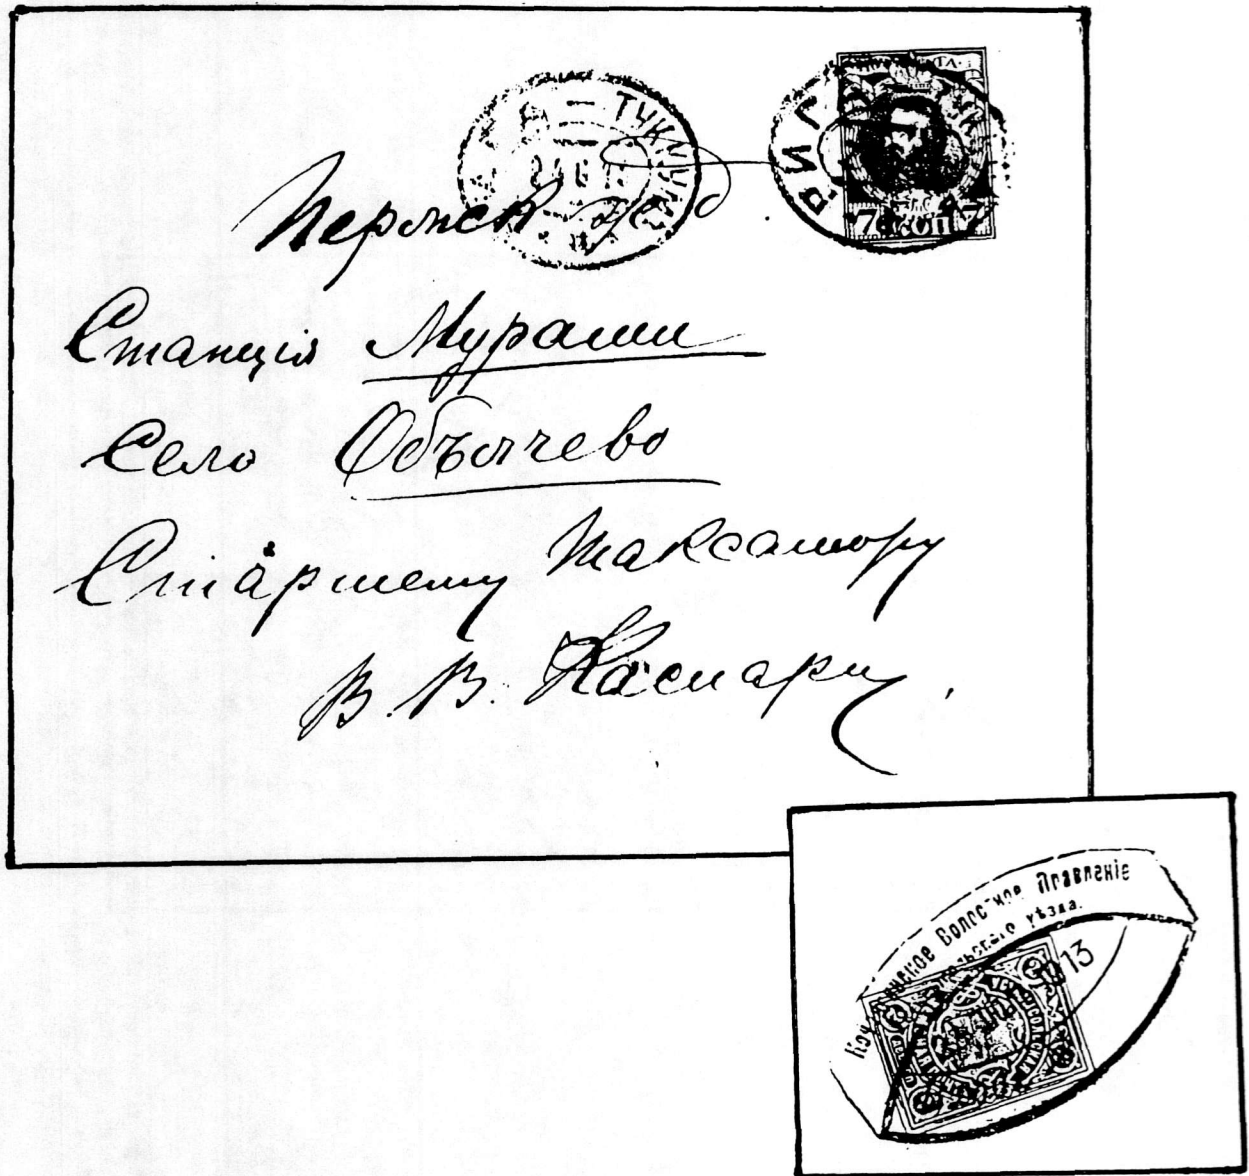 ТУККУМЪ
РИГА
7 КОП 7
Пермск
Станція Мураши
Село Объячево
Старшему таксатору
В. В. Каспару
Волостное Правленіе
уѣзда.
13